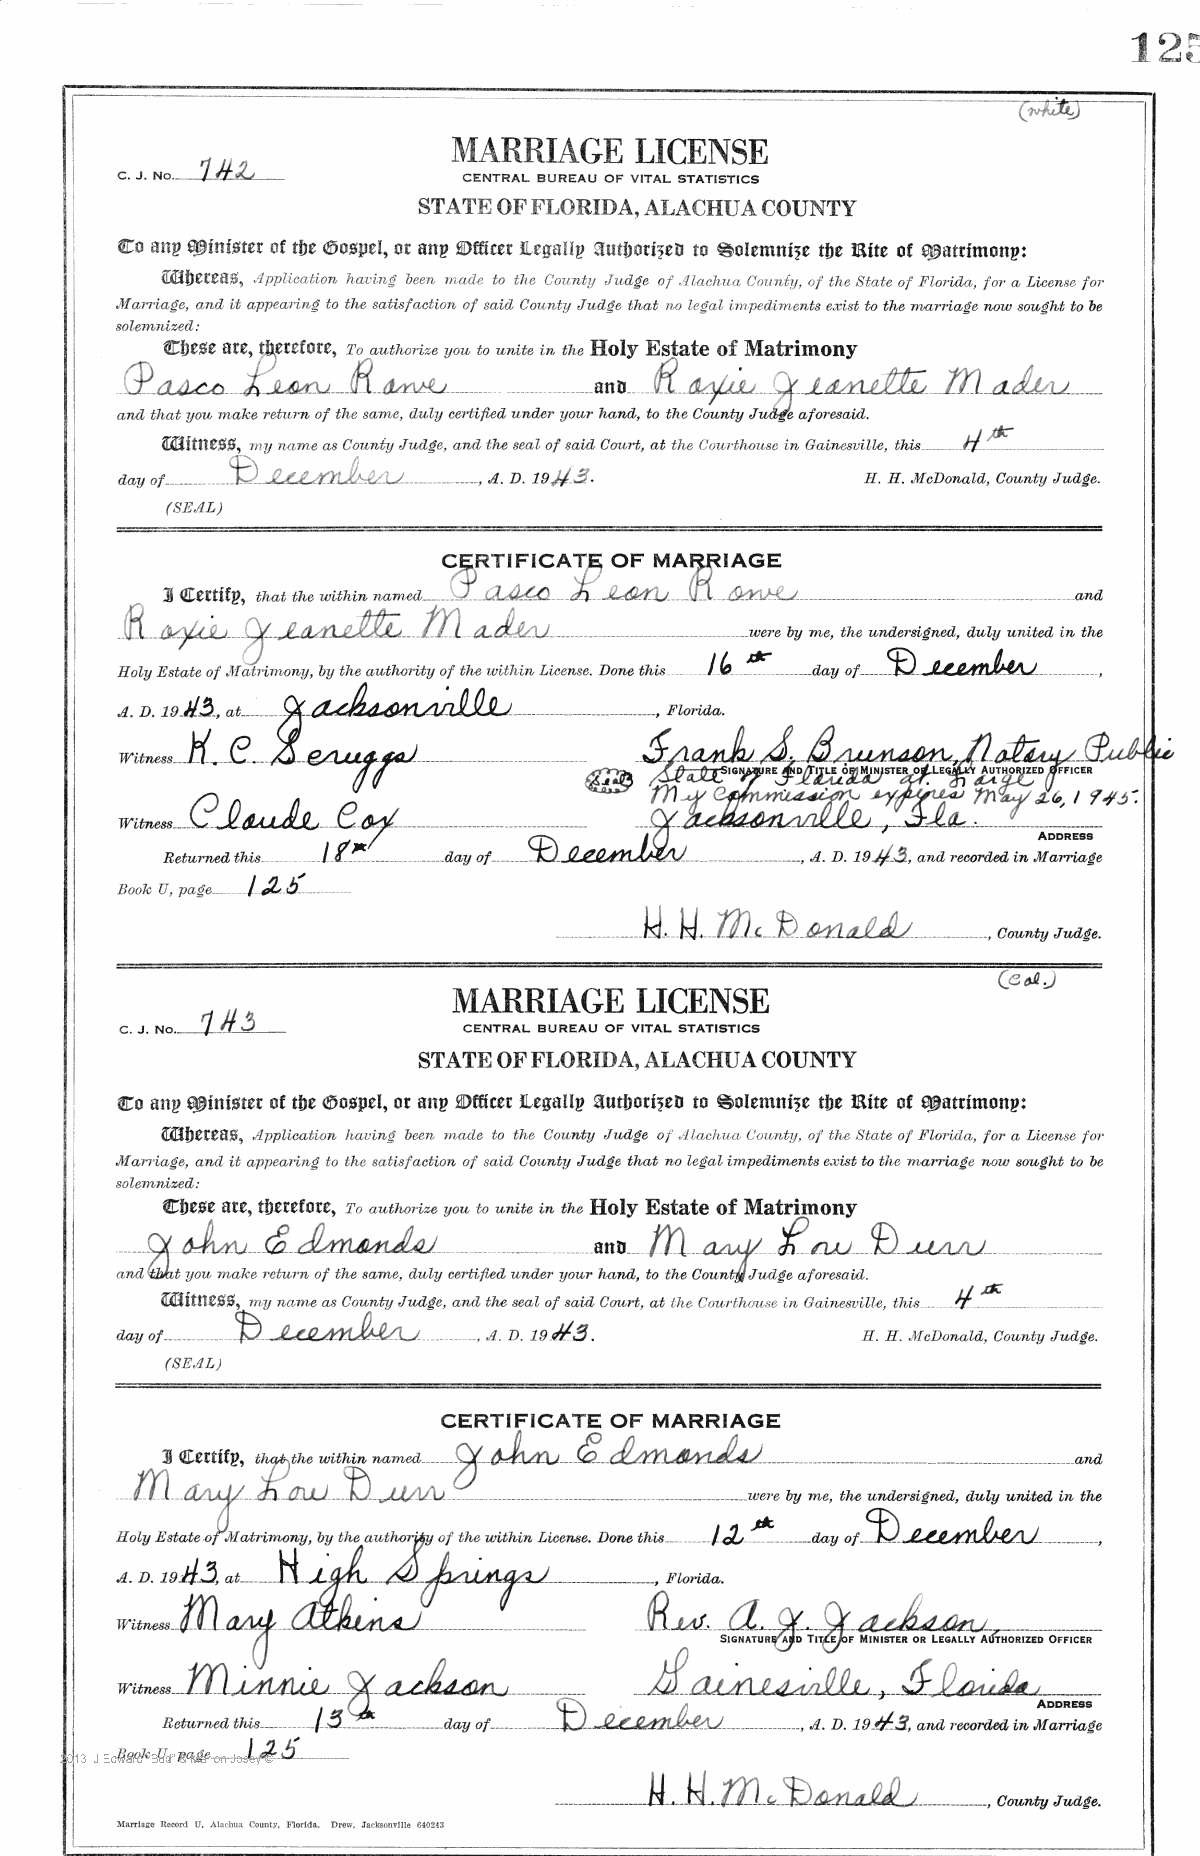 125
(white)
MARRIAGE LICENSE
C. J. No. 742
CENTRAL BUREAU OF VITAL STATISTICS
STATE OF FLORIDA, ALACHUA COUNTY
To any Minister of the Gospel, or any Officer Legally Authorized to Solemnize the Rite of Matrimony:
Whereas, Application having been made to the County Judge of Alachua County, of the State of Florida, for a License for
Marriage, and it appearing to the satisfaction of said County Judge that no legal impediments exist to the marriage now sought to be
solemnized:
These are, therefore, To authorize you to unite in the Holy Estate of Matrimony
Pasco Leon Rowe and Roxie Jeanette Mader
and that you make return of the same, duly certified under your hand, to the County Judge aforesaid.
Witness, my name as County Judge, and the seal of said Court, at the Courthouse in Gainesville, this 4th
day of December, A. D. 1943. H. H. McDonald, County Judge.
(SEAL)
CERTIFICATE OF MARRIAGE
I Certify, that the within named Pasco Leon Rowe and
Roxie Jeanette Mader were by me, the undersigned, duly united in the
Holy Estate of Matrimony, by the authority of the within License. Done this 16th day of December,
A. D. 1943, at Jacksonville, Florida.
Witness K. C. Scruggs Frank S. Brunson, Notary Public
SIGNATURE AND TITLE OF MINISTER OR LEGALLY AUTHORIZED OFFICER
(Seal) State of Florida at Large
My Commission expires May 26, 1945.
Witness Claude Cox Jacksonville, Fla.
ADDRESS
Returned this 18th day of December, A. D. 1943, and recorded in Marriage
Book U, page 125
H. H. McDonald, County Judge.
(Col.)
MARRIAGE LICENSE
C. J. No. 743
CENTRAL BUREAU OF VITAL STATISTICS
STATE OF FLORIDA, ALACHUA COUNTY
To any Minister of the Gospel, or any Officer Legally Authorized to Solemnize the Rite of Matrimony:
Whereas, Application having been made to the County Judge of Alachua County, of the State of Florida, for a License for
Marriage, and it appearing to the satisfaction of said County Judge that no legal impediments exist to the marriage now sought to be
solemnized:
These are, therefore, To authorize you to unite in the Holy Estate of Matrimony
John Edmonds and Mary Lou Durr
and that you make return of the same, duly certified under your hand, to the County Judge aforesaid.
Witness, my name as County Judge, and the seal of said Court, at the Courthouse in Gainesville, this 4th
day of December, A. D. 1943. H. H. McDonald, County Judge.
(SEAL)
CERTIFICATE OF MARRIAGE
I Certify, that the within named John Edmonds and
Mary Lou Durr were by me, the undersigned, duly united in the
Holy Estate of Matrimony, by the authority of the within License. Done this 12th day of December,
A. D. 1943, at High Springs, Florida.
Witness Mary Atkins Rev. A. J. Jackson,
SIGNATURE AND TITLE OF MINISTER OR LEGALLY AUTHORIZED OFFICER
Witness Minnie Jackson Gainesville, Florida
ADDRESS
Returned this 13th day of December, A. D. 1943, and recorded in Marriage
Book U, page 125
2013 J Edward "Bud" & Marion Josey ©
H. H. McDonald, County Judge.
Marriage Record U, Alachua County, Florida. Drew, Jacksonville 640243